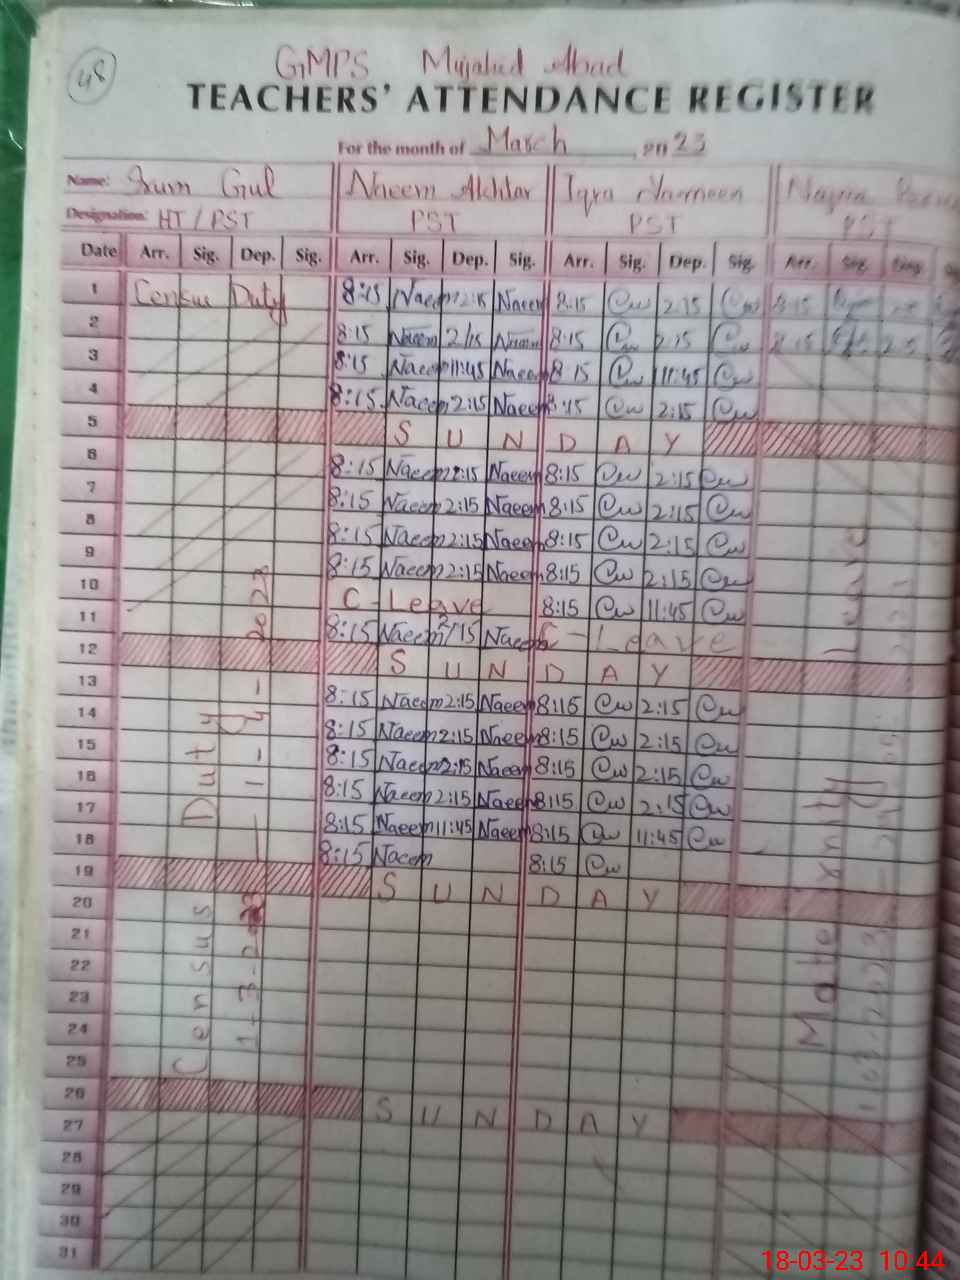 48
GMPS Mujahid Abad
TEACHERS' ATTENDANCE REGISTER
For the month of March, 2023
Name: Irum Gul Naeem Akhtar Iqra Najma
Designation: HT / PST PST PST PST
Date Arr. Sig. Dep. Sig. Arr. Sig. Dep. Sig. Arr. Sig. Dep. Sig. Arr. Sig. Dep.
1 Census Duty 8:15 Naeem 2:15 Naeem 8:15 2:15 8:15
2 8:15 Naeem 2/15 Naeem 8:15 2:15 8:15
3 8:15 Naeem 11:45 Naeem 8:15 11:45
4 8:15 Naeem 2:15 Naeem 8:15 2:15
5 S U N D A Y
6 8:15 Naeem 2:15 Naeem 8:15 2:15
7 8:15 Naeem 2:15 Naeem 8:15 2:15
8 8:15 Naeem 2:15 Naeem 8:15 2:15
9 8:15 Naeem 2:15 Naeem 8:15 2:15
10 C-Leave 8:15 11:45
11 8:15 Naeem 2/15 Naeem C-Leave
12 S U N D A Y
13 8:15 Naeem 2:15 Naeem 8:15 2:15
14 8:15 Naeem 2:15 Naeem 8:15 2:15
15 8:15 Naeem 2:15 Naeem 8:15 2:15
16 8:15 Naeem 2:15 Naeem 8:15 2:15
17 8:15 Naeem 11:45 Naeem 8:15 11:45
18 8:15 Naeem 8:15
19 S U N D A Y
20
21
22
23
24
25
26 S U N D A Y
27
28
29
30
31
Census Duty
Leave
18-03-23 10:44